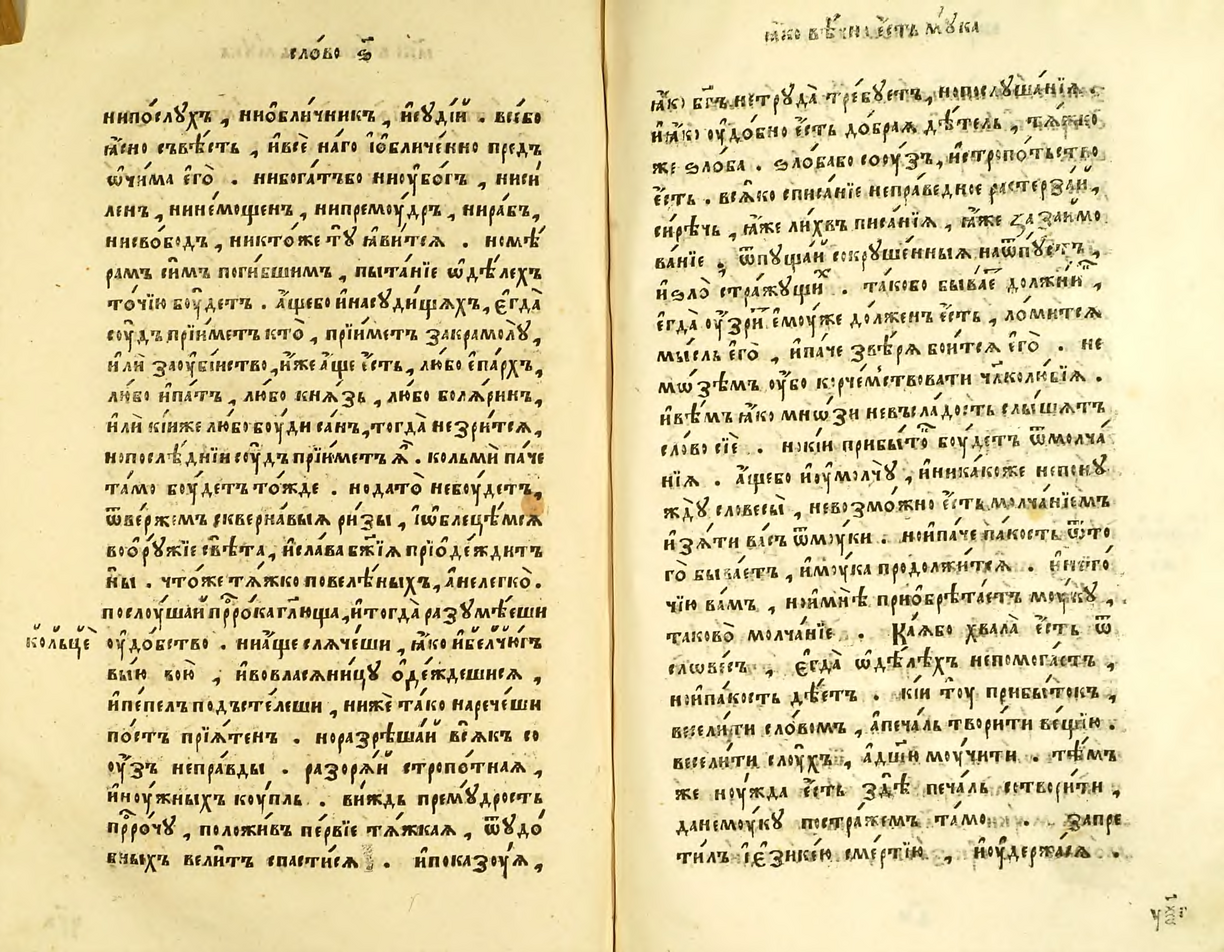 сло́во ѕ҃
нипо́слꙋхъ , ниѻбли́чникъ , нисꙋдїѝ . все́бо
ꙗ҆́сно съвѣ́сть , ивсѐ на́го іѻбличе́нно предъ
ѡ҆чи́ма єго̀ . нибога́тъбо ниоу҆бо́гъ , ниси́
ленъ , нине́мощенъ , нипремоу́дръ , нира́бъ ,
нисвобо́дъ , никто́же тꙋ̀ ꙗ҆ви́тсѧ . номѣ́
рамъ си́мъ поги́бшимъ , пыта́нїе ѡ҆дѣ́лехъ
то́чїю боу́детъ . а҆́щебо инасꙋди́щѧхъ , є҆гда̀
соу́дъ прїи́метъ кто̀ , прїи́метъ закрамолꙋ̀ ,
и҆лѝ заоу҆бі́нство , и҆́же а҆́ще є҆́сть , лю́бо є҆па́рхъ ,
лю́бо ѝпатъ , лю́бо кнѧ́зь , лю́бо болѧ́ринъ ,
и҆лѝ кі́иже лю́бо боу́ди са́нъ , тогда̀ незри́тсѧ ,
нопослѣ́днїи соу́дъ прїи́метъ ѧ҆̀ . кольмѝ па́че
та́мо боу́детъ то́жде . нодато̀ небоу́детъ ,
ѿве́ржемъ скверна́выѧ ри́зы , іѡ҆блеце́мсѧ
воѻрꙋ́жїе свѣ́та , исла́ва бж҃їѧ прїѻде́ждитъ
ны̀ . что́же тѧ́жко повелѣ́ныхъ , а҆нелегко̀ .
послоу́шай прⷪ҇ро́ка гл҃юща , итогда̀ разꙋмѣ́еши
кольцѐ
оу҆до́бство . ниа҆́ще слѧче́ши , ꙗ҆́ко и҆белчю́гъ
вы́ю вою̀ , ивовласѧни́цꙋ ѻде́ждешисѧ ,
ипе́пелъ подъсте́леши , ниже́ та́ко нарече́ши
по́стъ прїѧ́тенъ . норазрѣша́й всѧ́къ со
оу́зъ непра́вды . разорѧ́й стропо́тнаѧ ,
иноу́жныхъ коу́пль . ви́ждь премꙋ́дрость
прⷪ҇ро́чꙋ , положи́въ пе́рвїе тѧ́жкаѧ , ѿꙋдо́
бныхъ вели́тъ спасти́сѧ . ипоказоу́ѧ ,
ꙗ҆́ко вѣ́чна є҆́сть мꙋ́ка
ꙗ҆́ко бг҃ъ нетрꙋда̀ тре́бꙋетъ , нопослꙋша́нїѧ .
иꙗ҆́ко оу҆до́бно є҆́сть до́браѧ дѣ́тель , тѧ́жко
же ѕло́ба . ѕло́бабо сооу́зъ , истропо́тьство
є҆́сть . всѧ́ко списа́нїе непра́ведное расте́рзай ,
си́рѣчь , ꙗ҆́же ли́хвъ писа́нїѧ , ꙗ҆́же зазаимо
ва́нїе . ѿпꙋща́й сокрꙋше́нныѧ наѿпꙋ́стъ ,
иѕло̀ стра́жꙋщиⷯ . та́ково быва́еⷮ должни́иⷨ ,
є҆гда̀ оу́зриⷮ є҆мꙋ́же до́лженъ є҆́сть , ло́митсѧ
мы́сль єго̀ , ипа́че звѣ́рѧ бои́тсѧ єго̀ . не
мѡ́зѣмъ оу҆́бо корче́мствовати чл҃колю́бїѧ .
ивѣ́мъ ꙗ҆́ко мнѡ́зи невъсла́дость слы́шѧтъ
сло́во сїѐ . нокі́и прибы́тоⷦ боу́детъ ѿмолча́
нїѧ . а҆́щебо и҆оу҆молчꙋ̀ , иника́коже непонꙋ́
ждꙋ словесы̀ , невозмо́жно є҆́сть молча́нїемъ
изѧ́ти ва́съ ѿмоу́ки . нои́паче па́кость ѿто
го̀ быва́етъ , имоу́ка продо́лжитсѧ . и҆не́го
чїю ва́мъ , нои҆мнѣ̀ приѻбрѣта́етъ моу́кꙋ ,
таково̀ молча́нїе . Ка́ѧбо хвала̀ є҆́сть ѿ
слове́съ , є҆гда̀ ѡ҆дѣ́лѣхъ непомога́етъ ,
нои́пакость дѣ́етъ . кі́и тоу̀ прибы́токъ ,
весели́ти сло́вомъ , а҆печа́ль твори́ти ве́щїю .
весели́ти слоу́хъ , а҆дш҃и моу́чити . тѣ́мъ
же ноу́жда є҆́сть здѣ̀ печа́ль сотвори́ти ,
данемоу́кꙋ постра́жемъ та́мо . запре
ти́лъ іє҆зикє́ю сме́ртїю , и҆оу҆держа́сѧ .